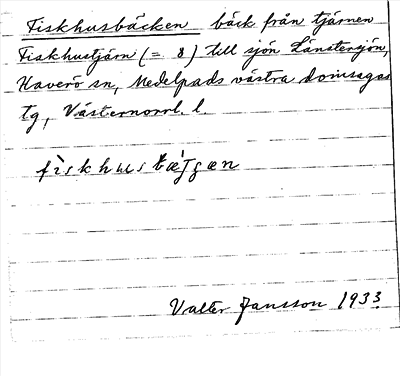 Fiskhusbäcken bäck från tjärnen
Fiskhustjärn (= 8) till sjön Länstersjön,
Haverö sn, Medelpads västra domsagas
tg, Västernorrl. l.
fìskhusbæ̀jgæn
Valter Jansson 1933